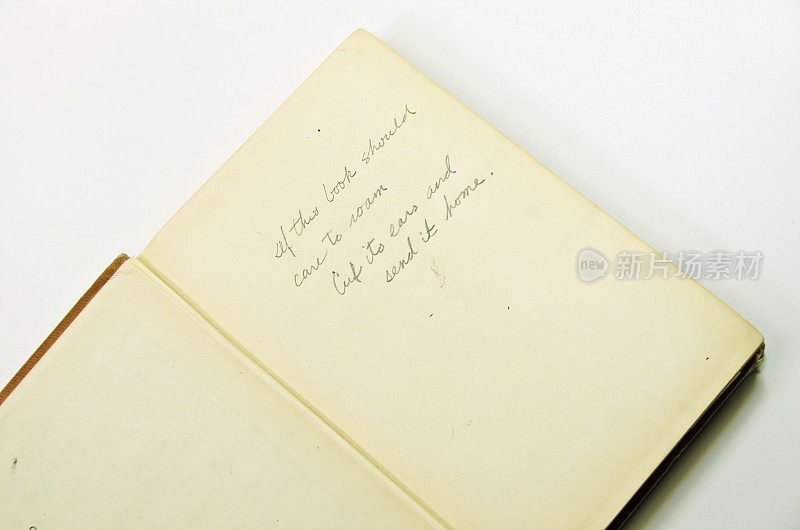 If this book should
care to roam
Cuf its ears and
send it home.
new 新片场素材